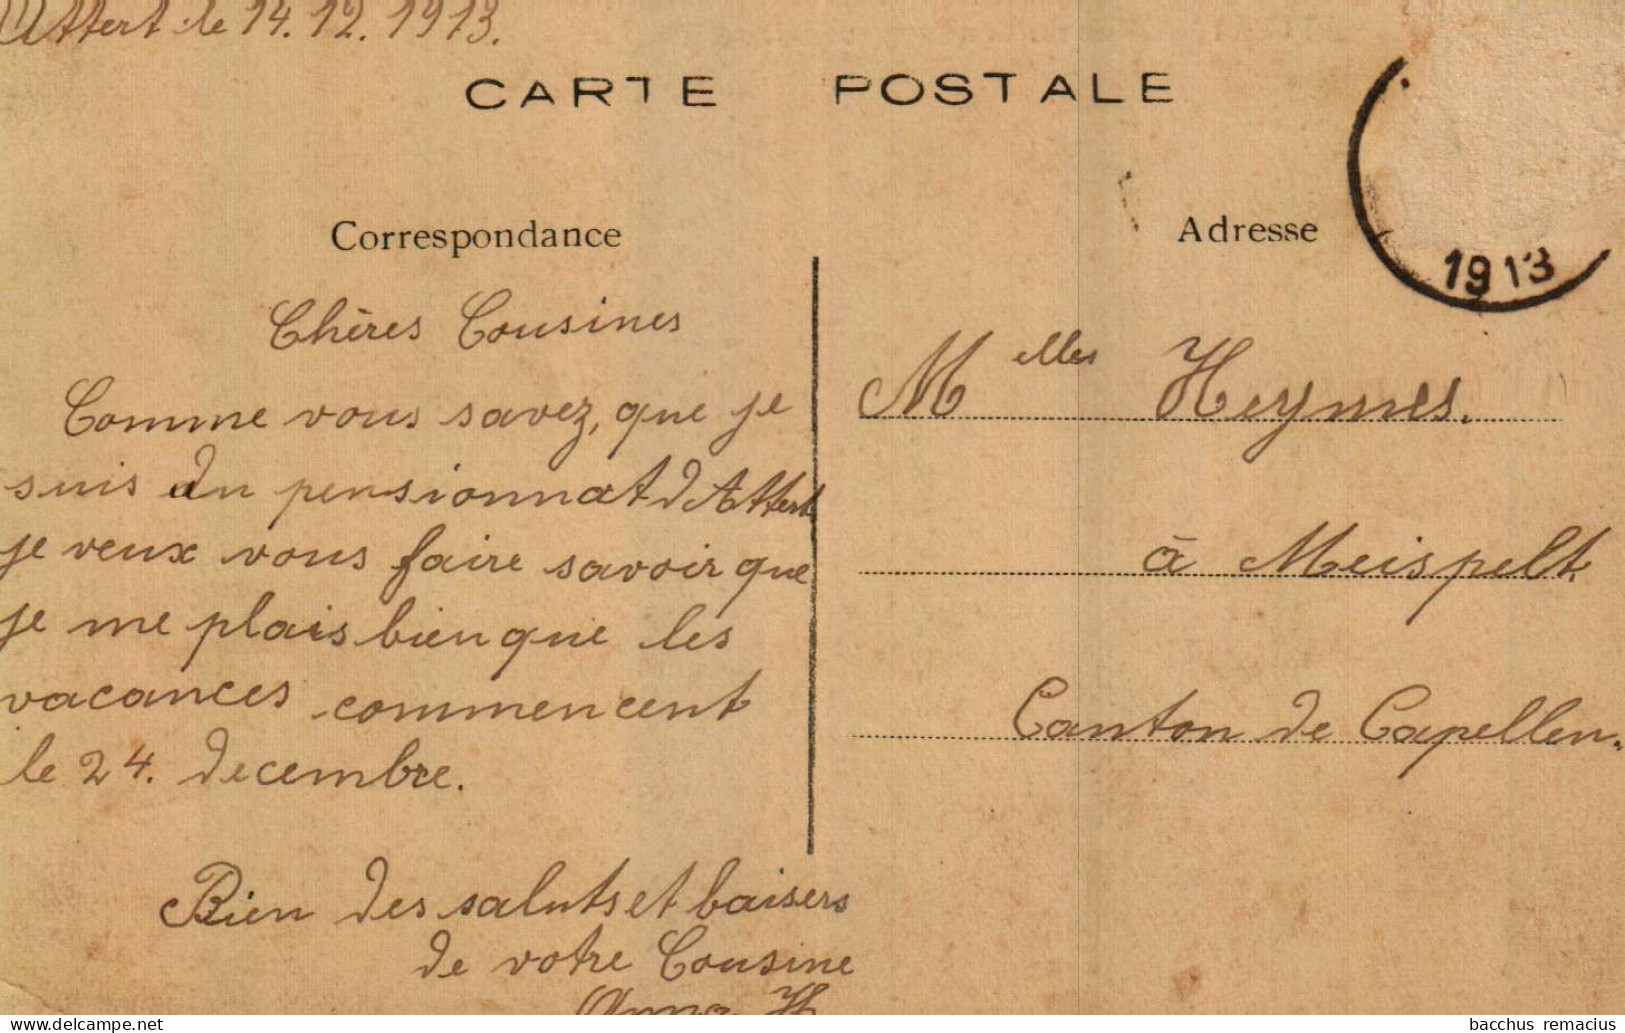 Attert le 14.12.1913.
CARTE POSTALE
Correspondance
Adresse
1913
Chères Cousines
Comme vous savez, que je
suis du pensionnat d'Attert
je veux vous faire savoir que
je me plais bien que les
vacances commencent
le 24. decembre.
Bien des saluts et baisers
de votre Cousine
Anna H
Melles Heymes.
à Meispelt
Canton de Capellen.
bacchus remacius